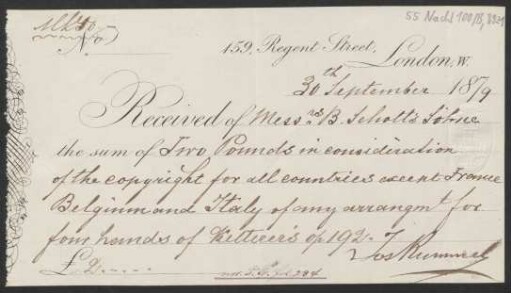 55 Nachl 100/B,
No
159, Regent Street,
London, W.
30th September 1879
Received of Messrs. B. Schott's Söhne
the sum of Two Pounds in consideration
of the copyright for all countries except France
Belginm and Italy of my arrangmt for
four hands of Ketterer's op 192.
Jos Rummel
£2